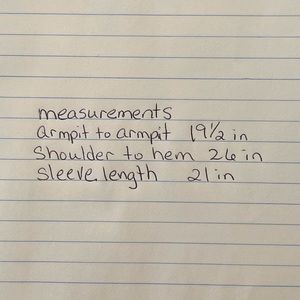 measurements
armpit to armpit 19½ in
Shoulder to hem 26 in
Sleeve length 21 in